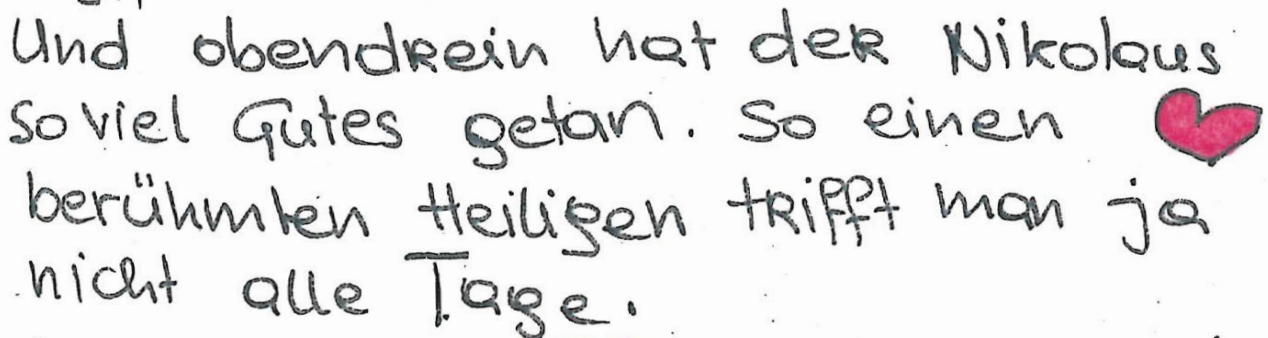 Und obendrein hat der Nikolaus
soviel Gutes getan. So einen
berühmten Heiligen trifft man ja
nicht alle Tage.